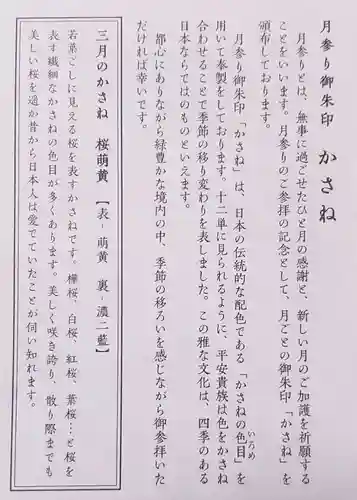 月参り御朱印 かさね
月参りとは、無事に過ごせたひと月の感謝と、新しい月のご加護を祈願する
ことをいいます。月参りのご参拝の記念として、月ごとの御朱印「かさね」を
頒布しております。
月参り御朱印「かさね」は、日本の伝統的な配色である「かさねの色目」を
いろめ
用いて奉製をしております。十二単に見られるように、平安貴族は色をかさね
合わせることで季節の移り変わりを表しました。この雅な文化は、四季のある
日本ならではのものといえます。
都心にありながら緑豊かな境内の中、季節の移ろいを感じながら御参拝いた
だければ幸いです。
三月のかさね 桜萌黄 【表-萌黄 裏-濃二藍】
若葉ごしに見える桜を表すかさねです。樺桜、白桜、紅桜、葉桜…と桜を
表す繊細なかさねの色目が多くあります。美しく咲き誇り、散り際までも
美しい桜を遥か昔から日本人は愛でていたことが伺い知れます。